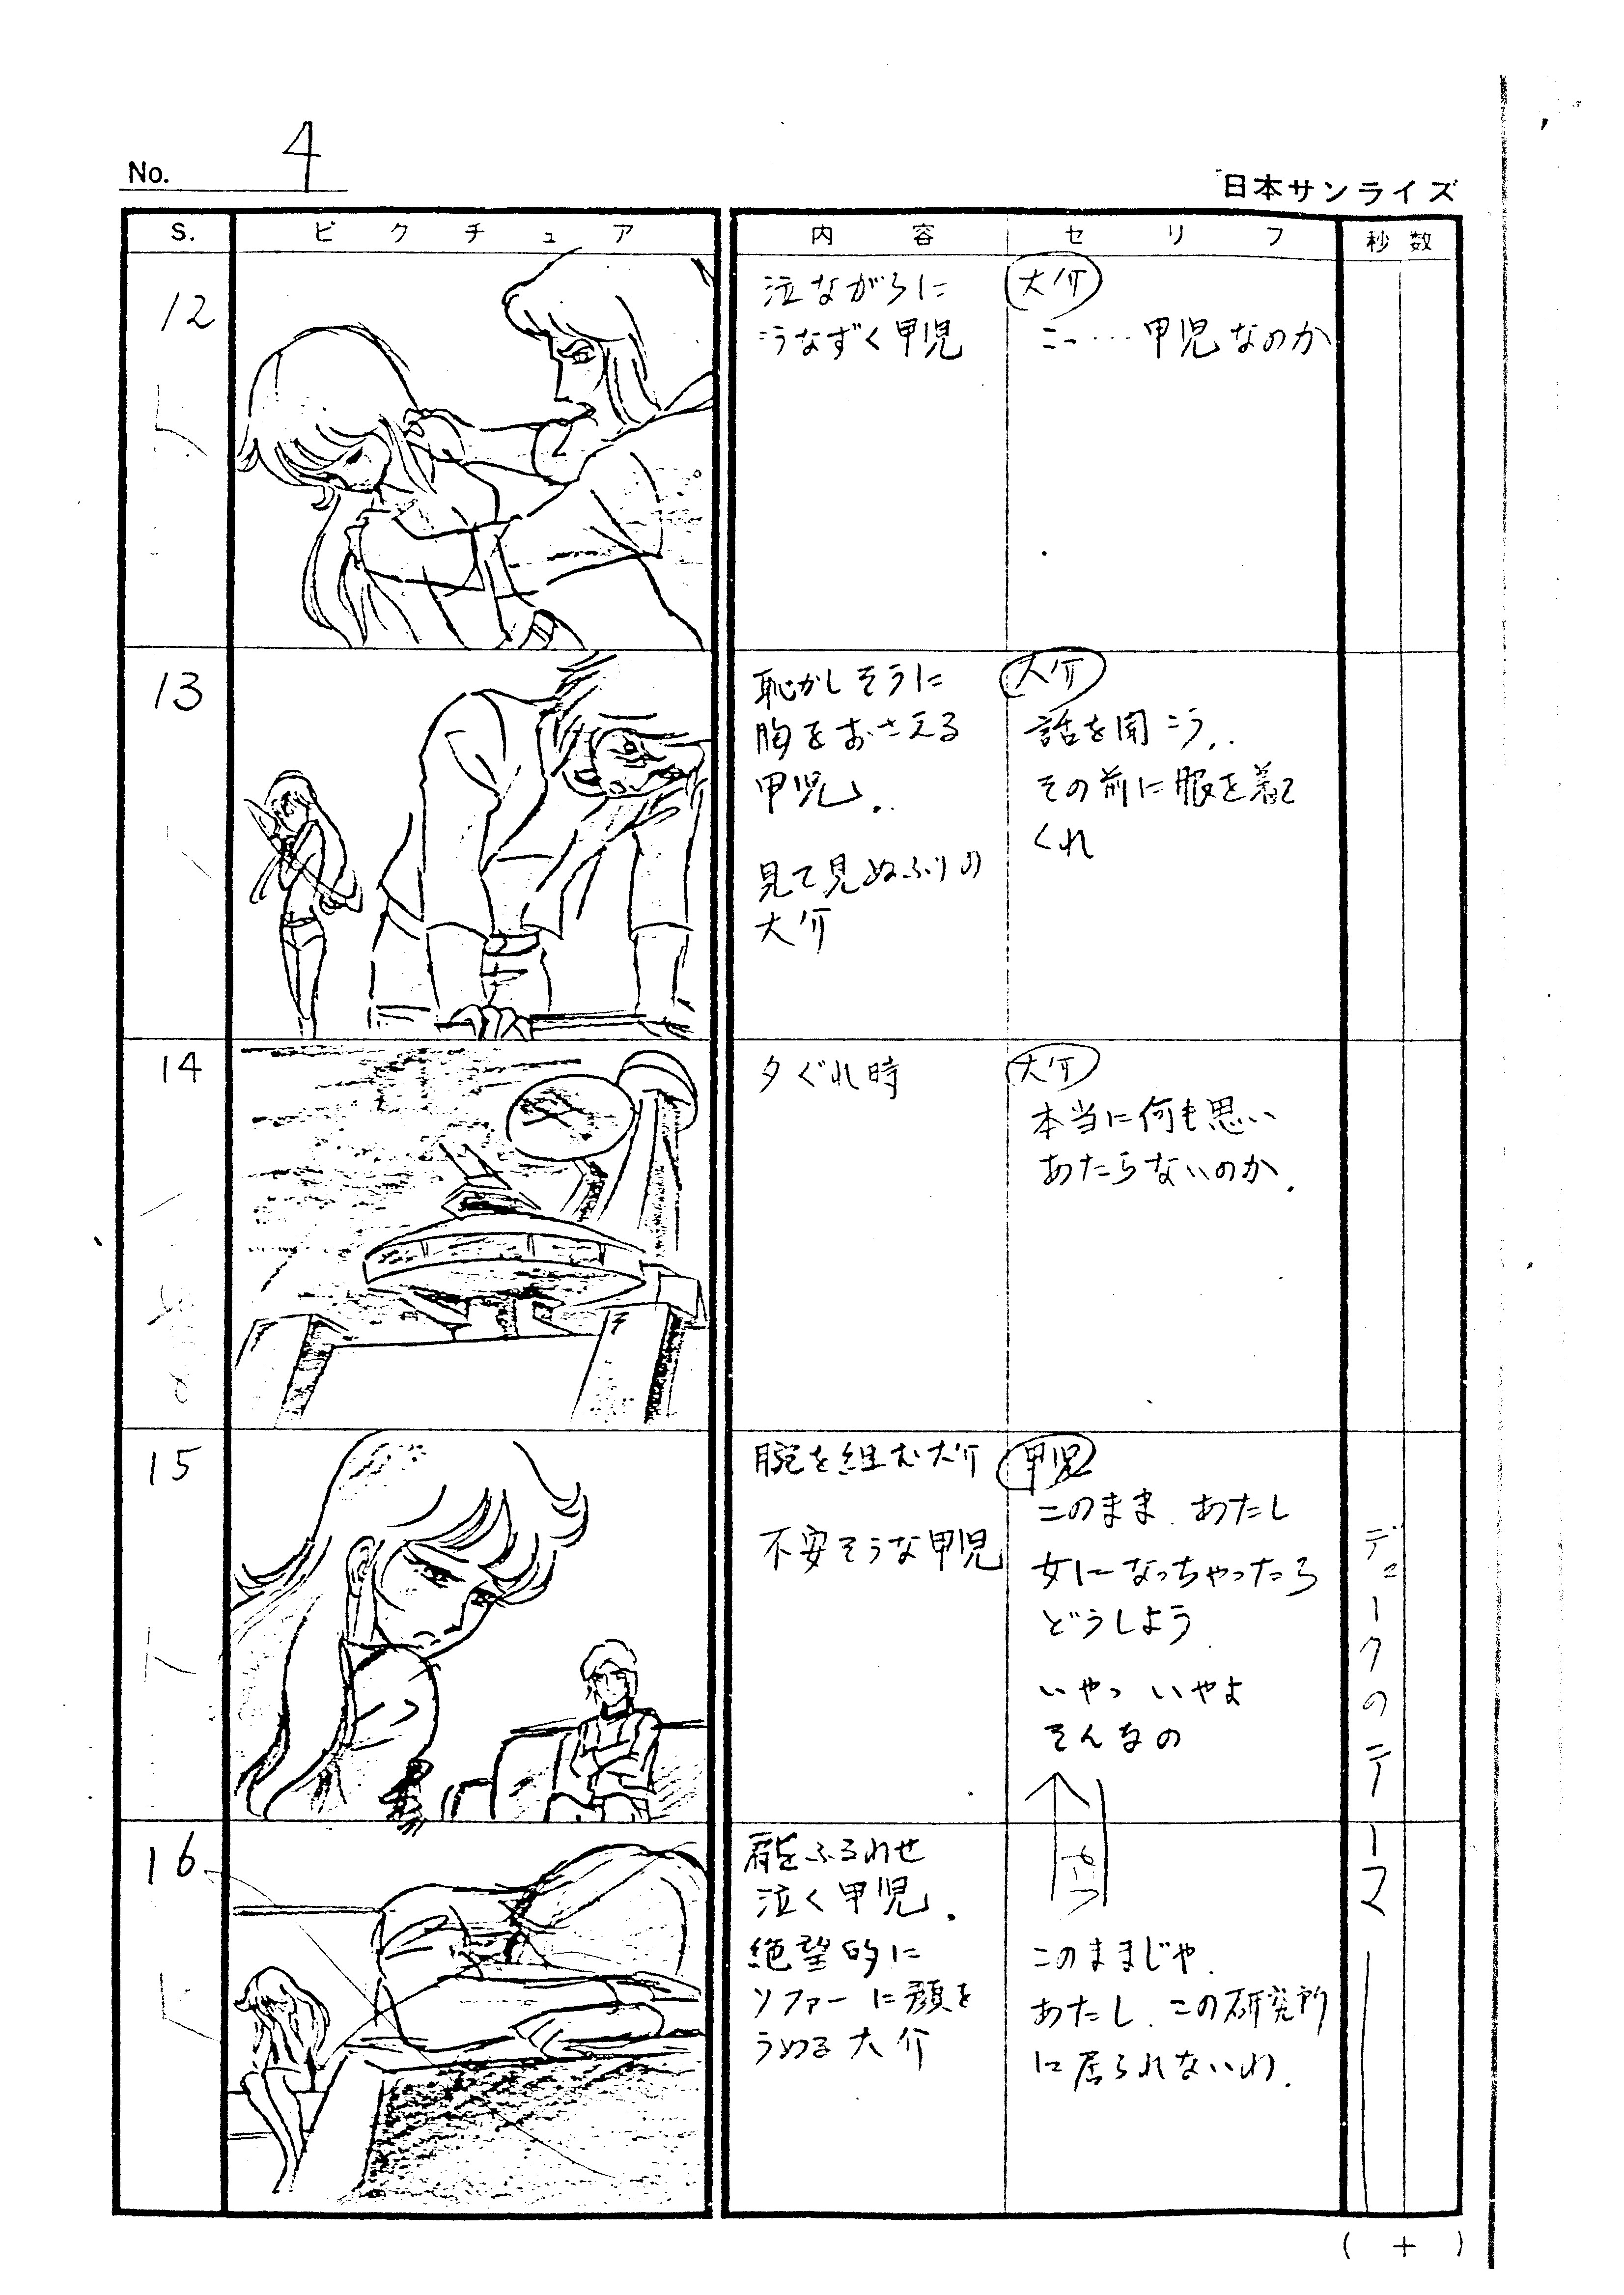 No. 4
日本サンライズ
S.
ピクチュア
内容
セリフ
秒数
12
泣ながらに
うなずく甲児
大介
こっ…甲児なのか
13
恥かしそうに
胸をおさえる
甲児.
見て見ぬふりの
大介
大介
話を聞こう..
その前に服を着て
くれ
14
夕ぐれ時
大介
本当に何も思い
あたらないのか.
15
腕を組む大介
不安そうな甲児
甲児
このまま、あたし
女になっちゃったら
どうしよう.
いやっ いやよ
そんなの
デュークのテーマ
16
肩をふるわせ
泣く甲児.
絶望的に
ソファーに顔を
うめる大介
このままじゃ.
あたし、この研究所
に居られないわ.
( + )